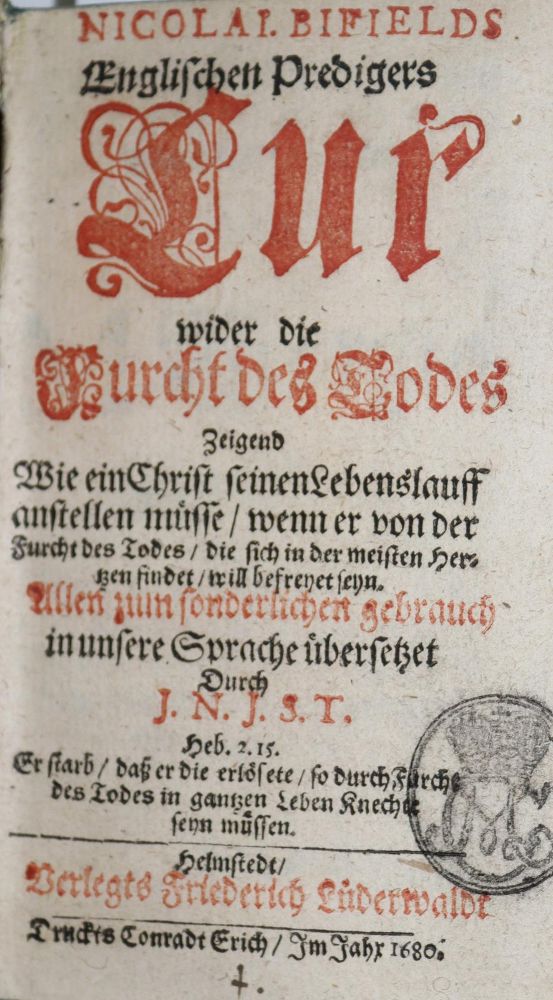 NICOLAI. BIFIELDS
Englischen Predigers
Cur
wider die
Furcht des Todes
Zeigend
Wie ein Christ seinen Lebenslauff
anstellen müsse / wenn er von der
Furcht des Todes / die sich in der meisten Her-
tzen findet / will befreyet seyn.
Allen zum sonderlichen gebrauch
in unsere Sprache übersetzet
Durch
J. N. J. S. T.
Heb. 2. 15.
Er starb / daß er die erlösete / so durch Furcht
des Todes in gantzen Leben Knechte
seyn müssen.
Helmstedt /
Verlegts Friederich Lüderwaldt
Druckts Conradt Erich / Im Jahr 1680.